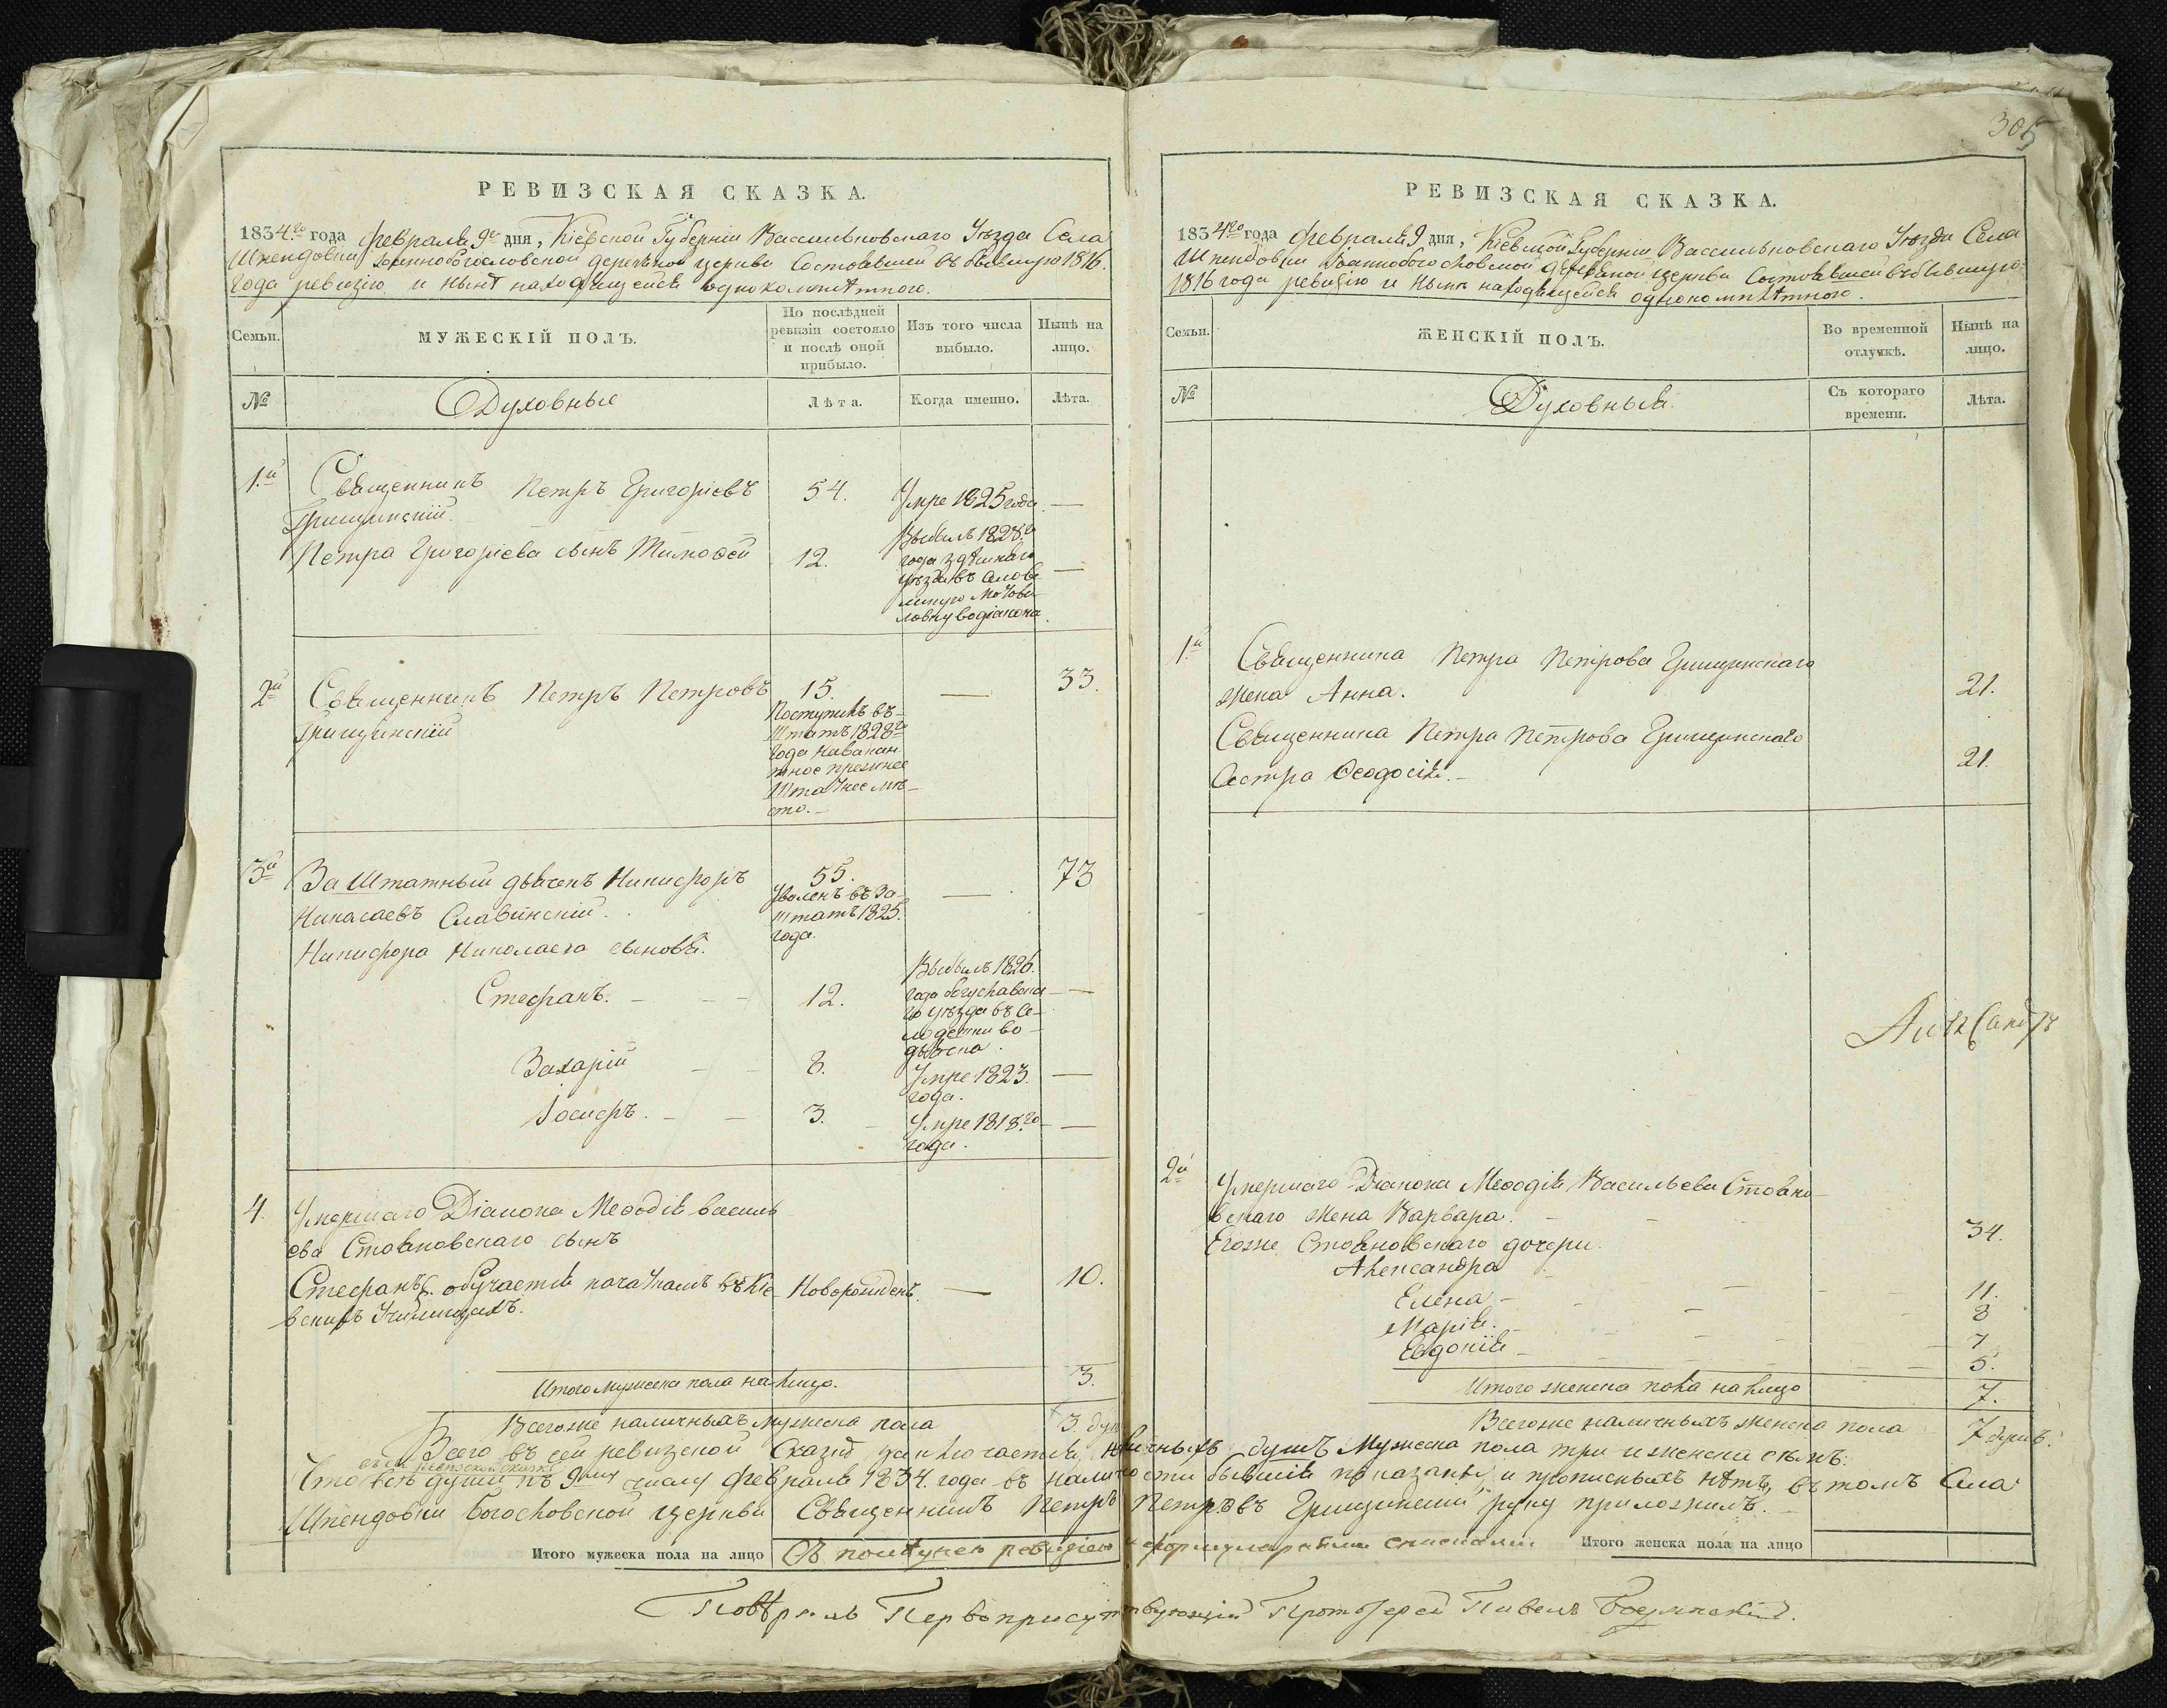 305
РЕВИЗСКАЯ СКАЗКА.
1834.го года февраля 9го дня, Кіевской Губерніи Васильковскаго Уѣзда Села
Шпендовки Іоаннобогословской деревяной церкви Состоявшей въ бывшую 1816.
Года ревизію и нынѣ находящейся однокомплѣтного.
Семьи.
МУЖЕСКІЙ ПОЛЪ.
По послѣдней
ревизіи состояло
и послѣ оной
прибыло.
Изъ того числа
выбыло.
Нынѣ на
лицо.
№
Духовные
Лѣта.
Когда именно.
Лѣта.
1.й Священникъ Петръ Григоріевъ 54. Умре 1825 года. —
Грищинскій.
Петра Григоріева сынъ Тимофей 12. —
Выбылъ 1828.го
года здѣшнего
уѣзда въ
ловку водіакона.
2й Священникъ Петръ Петровъ 15. — 33.
Грищинскій
Поступилъ въ-
Штатъ 1828го
года навакан
тное
Штатное мѣ-
сто.-
3й За Штатный дьячекъ Никифоръ 55. — 73
Николаевъ Славинскій.
Уволенъ въ За-
штатъ 1825.
года.
Никифора Николаева сыновья.
Стефанъ. - - - 12. —
Выбылъ 1826.
года богуславска-
го уѣзда въ Се-
ло
дьячка.
Захарій - - 8. Умре 1823. —
года.
Іосифъ. - - 3. - Умре 1818.го —
года.
4. Умершаго Діакона Мефодія василь
ева Стояновскаго сынъ
Стефанъ. обучается началамъ въ Кіе Новорожденъ. — 10.
вскихъ Училищахъ.
Итого мужеска пола на лицо. 3.
Всегоже наличныхъ мужеска пола 3. душ
РЕВИЗСКАЯ СКАЗКА.
1834го года февраля 9 дня, Кіевской Губерніи Васильковскаго Уѣзда Села
Шпендовки Іоаннобогословской деревяной церкви Состоявшей въ бывшую
1816 года ревизію и нынѣ находящейся однокомплѣтного.
Семьи.
ЖЕНСКІЙ ПОЛЪ.
Во временной
отлучкѣ.
Нынѣ на
лицо.
№
Духовныя.
Съ котораго
времени.
Лѣта.
1й Священника Петра Петрова Грищинскаго
жена Анна. 21.
Священника Петра Петрова Грищинскаго
Сестра Феодосія. - 21.
2й Умершаго Діакона Мефодія Васильева Стояно-
вскаго жена Варвара. 34.
Егоже Стояновскаго дочери.
Александра 11.
Елена - 8
Марія. - 7
Евдокія - 5.
Итого женска пола на лицо 7.
Всегоже наличныхъ женска пола 7 душъ.
Всего въ сей ревизской Сказкѣ заключается наличныхъ душъ Мужеска пола три и женска семъ.
сей ревизской сказки
Что всѣ души къ 9му числу февраля 1834. года въ наличности бывшія показаны, и прописныхъ нѣтъ, въ томъ Села
Шпендовки Богословской церкви Священникъ Петръ Петровъ Грищинскій руку приложилъ.
Итого мужеска пола на лицо
Съ ревизіею и формулярными списками
Итого женска пола на лицо
Повѣрилъ Первоприсутствующій Протоіерей Павелъ